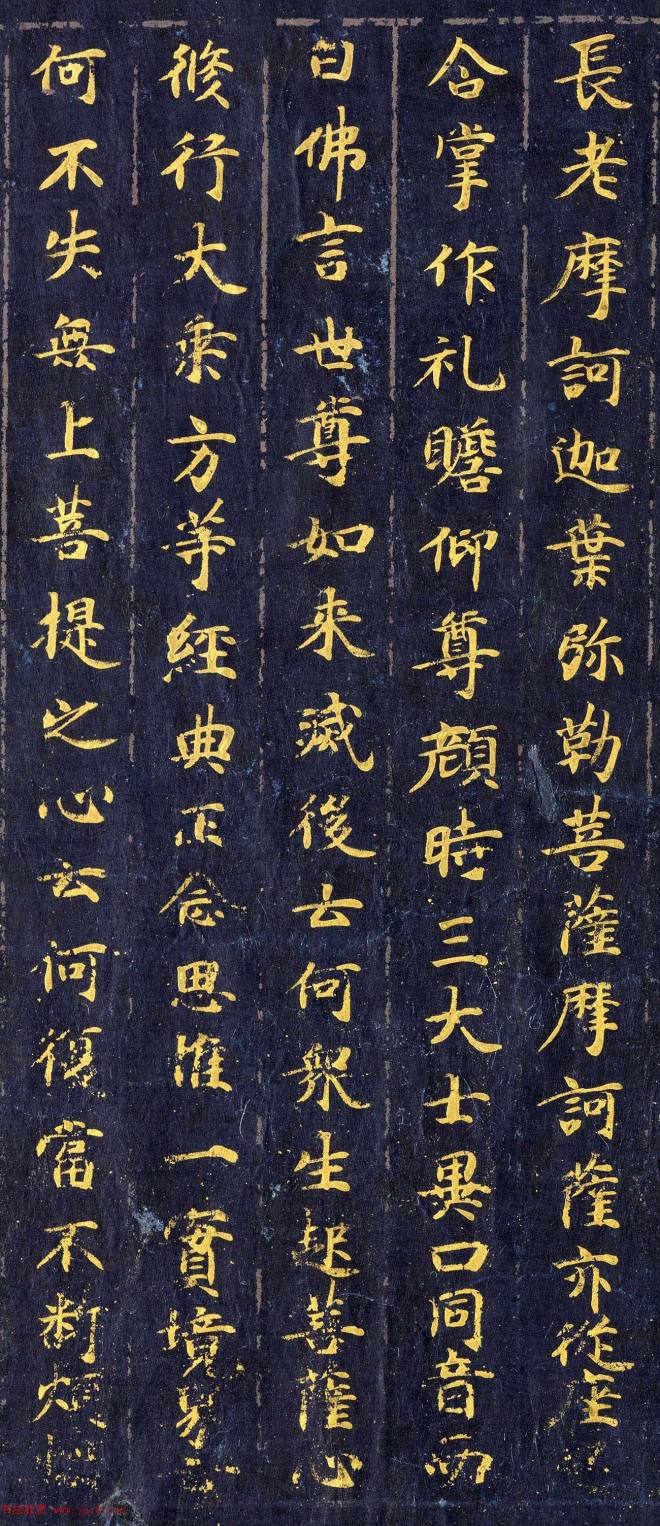 長老摩訶迦葉弥勒菩薩摩訶薩亦従座起
合掌作礼瞻仰尊顔時三大士異口同音而
白佛言世尊如来滅後云何衆生起菩薩心
修行大乗方等經典正念思惟一實境界云
何不失無上菩提之心云何復當不断煩惱